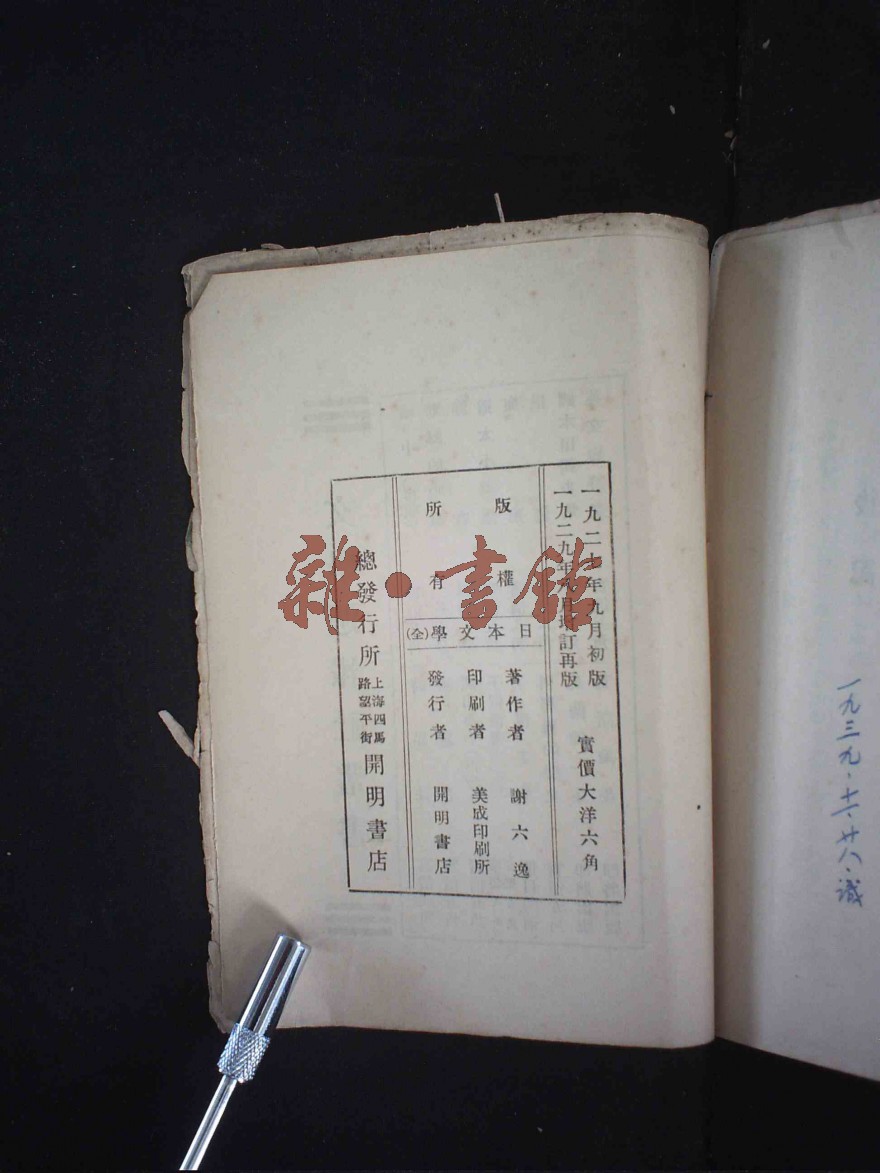 一九三九·十一·廿八·識
一九二七年九月初版
一九二九年月增訂再版
實價大洋六角
版權
所有
日本文學(全)
著作者 謝六逸
印刷者 美成印刷所
發行者 開明書店
總發行所 上海四馬路望平街 開明書店
雜·書館